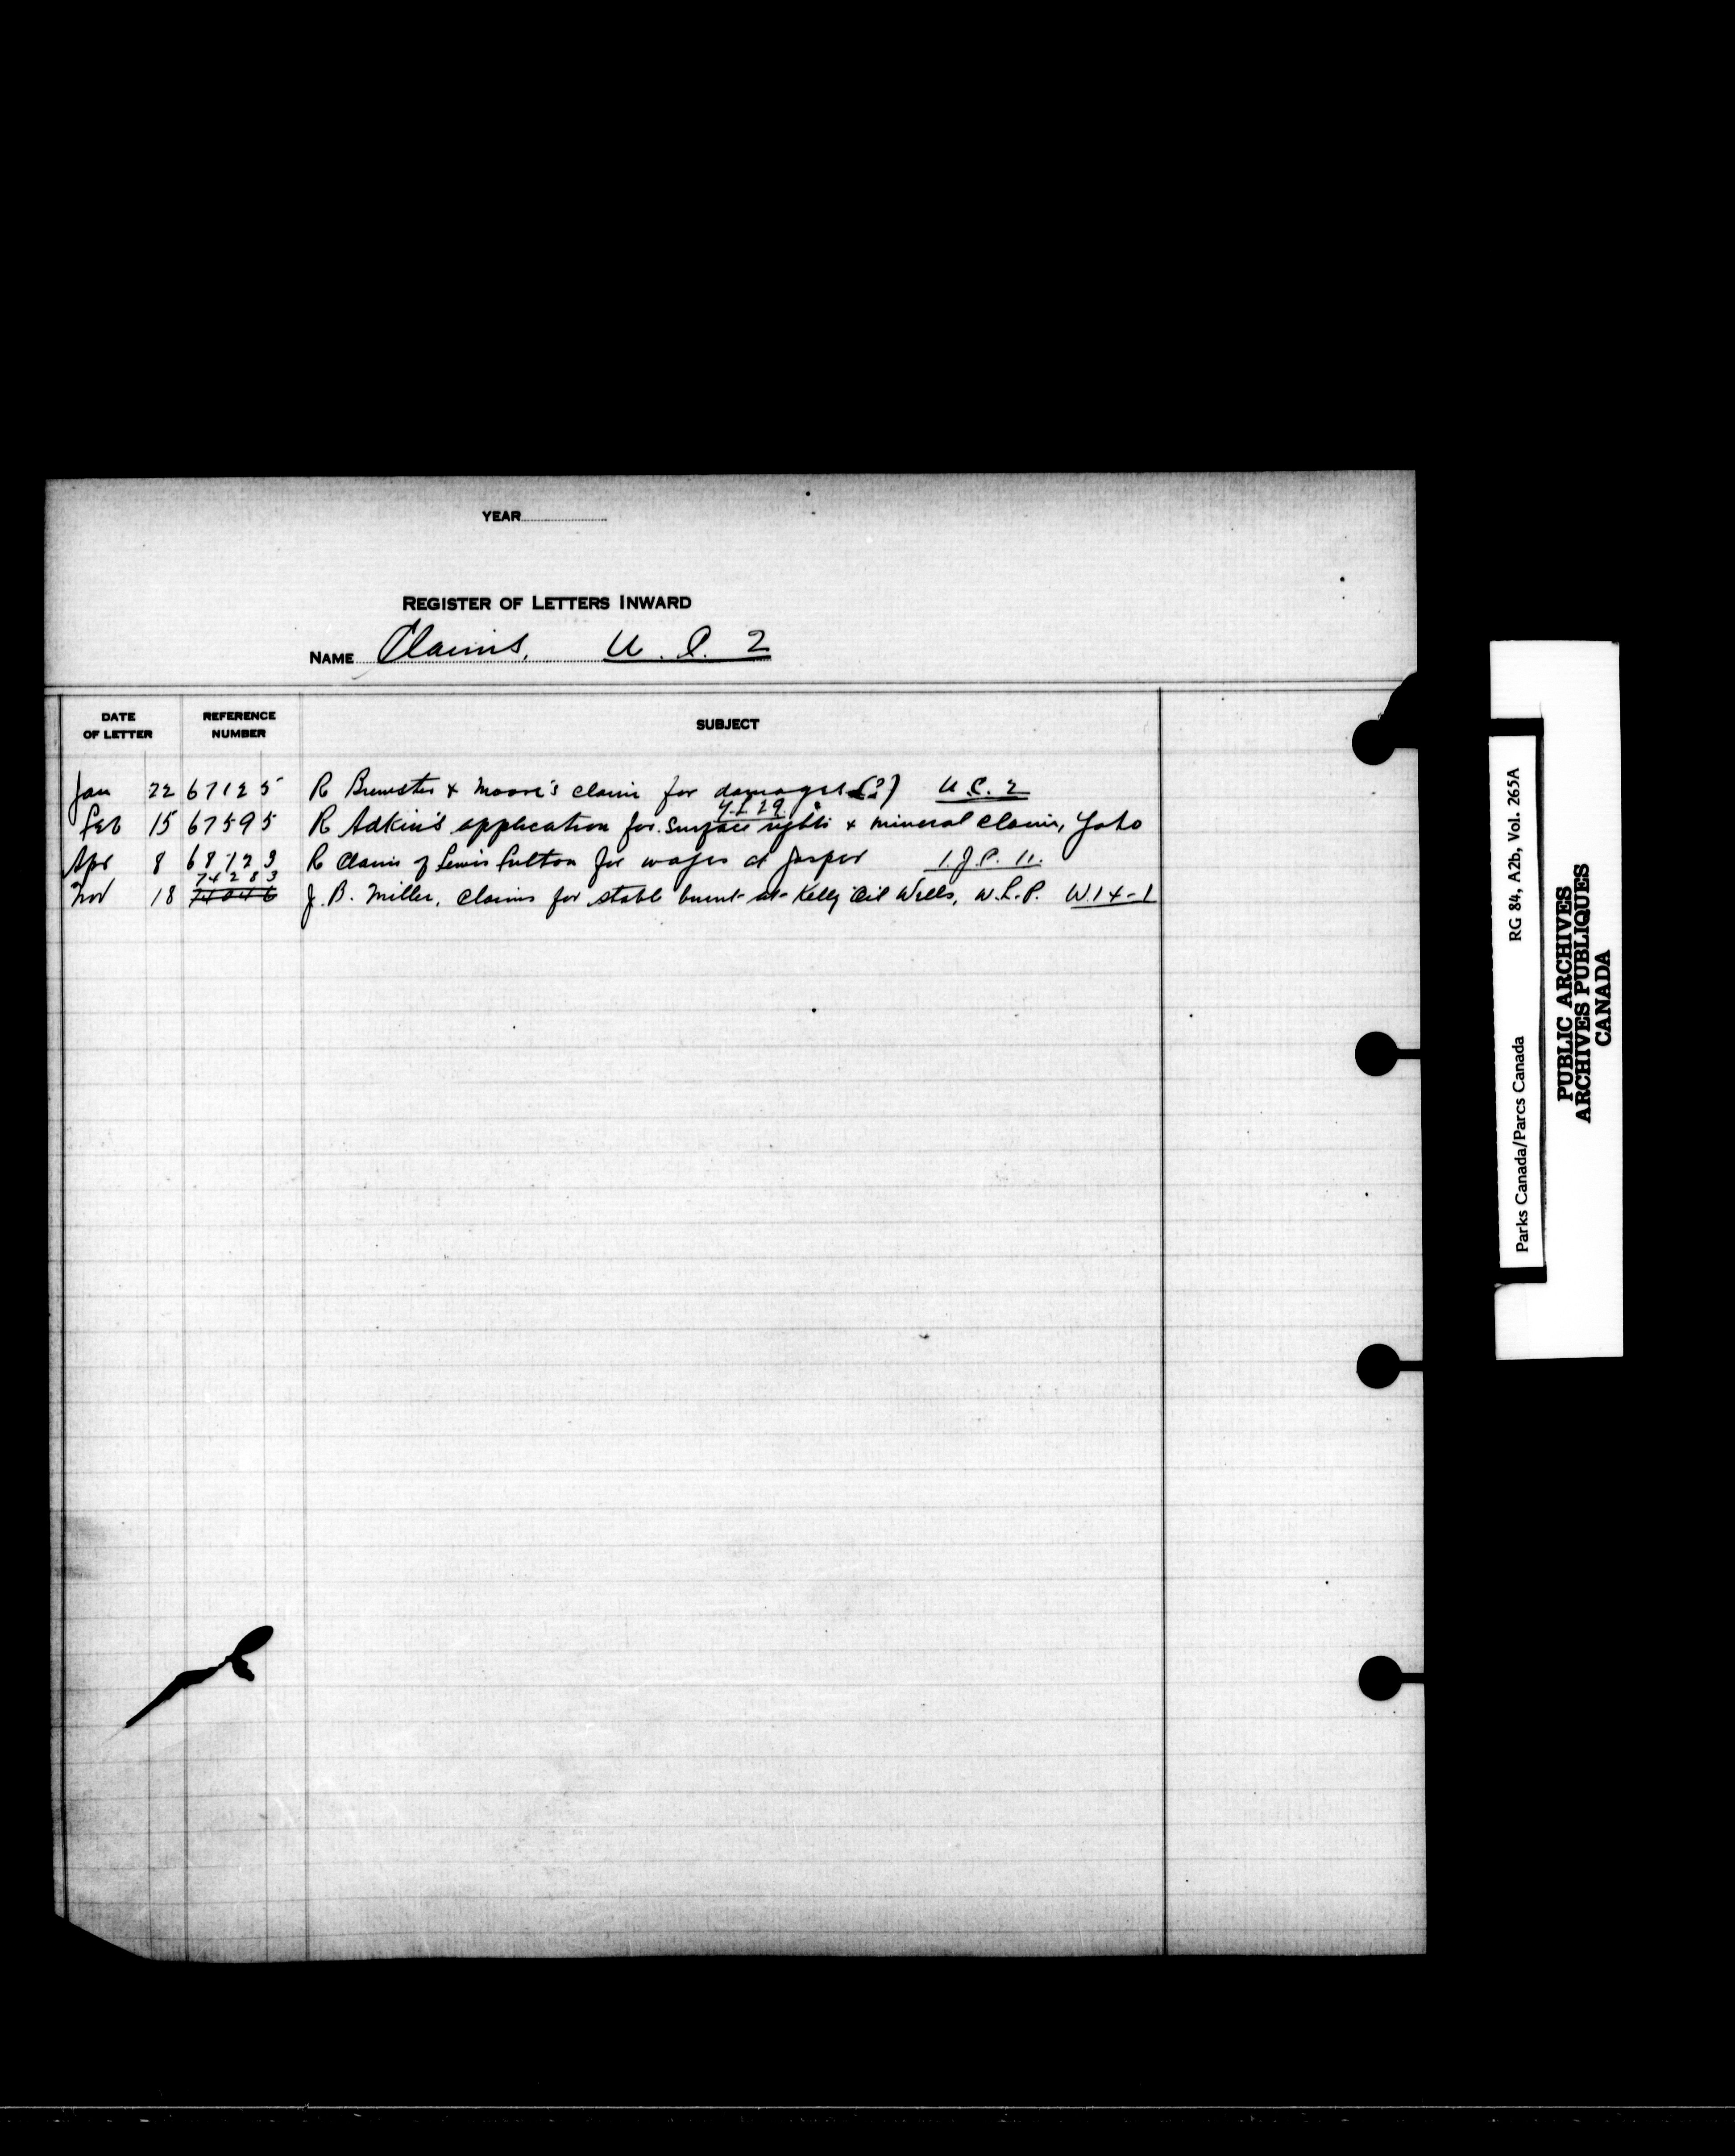 YEAR
REGISTER OF LETTERS INWARD
NAME Claims, U. C. 2
DATE OF LETTER REFERENCE NUMBER SUBJECT
Jan 22 67125 R Brewster & Moore's claim for damages (?) U.C. 2
Y.L 29
Feb 15 67595 R Adkin's application for surface rights & mineral claim, Yoho
Apr 8 68123 R Claim of Lewis Fulton for wages at Jasper 1.J.P. 11.
74283
Nov 18 74046 J. B. Miller, claims for stable burnt at Kelly Oil Wells, W.L.P. W.14-1
Parks Canada/Parcs Canada RG 84, A2b, Vol. 265A
PUBLIC ARCHIVES
ARCHIVES PUBLIQUES
CANADA